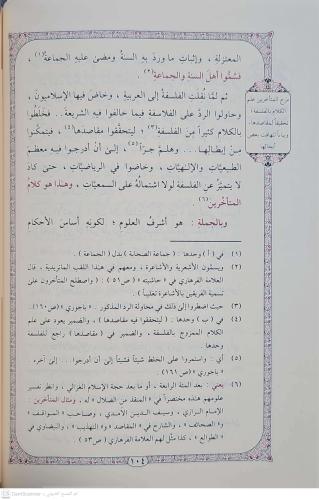 المعتزلةِ ، وإثباتِ ما وردَ بهِ السنةُ ومضىٰ عليهِ الجماعةُ(١) ،
فسُمُّوا أهلَ السنةِ والجماعةِ(٢) .
ثم لمَّا نُقلَتِ الفلسفةُ إلى العربيةِ ، وخاضَ فيها الإسلاميون ،
وحاولوا الردَّ على الفلاسفةِ فيما خالفوا فيه الشريعةَ .. فخلَطُوا
بالكلامِ كثيراً منَ الفلسفةِ(٣) ؛ ليتحقَّقوا مقاصدَها(٤) ، فيتمكَّنوا
مِنْ إبطالِها .. وهلمَّ جرّاً(٥) ، إلىٰ أن أدرجوا فيهِ معظمَ
الطبيعيَّاتِ والإلـٰهيَّاتِ ، وخاضوا في الرياضيَّاتِ ، حتىٰ كادَ
لا يتميَّزُ عنِ الفلسفةِ لولا اشتمالُهُ على السمعيَّاتِ ، وهـٰذا هو كلامُ
المتأخِّرينَ(٦) .
وبالجملةِ : هو أشرفُ العلومِ ؛ لكونِهِ أساسَ الأحكامِ
مزج المتأخرين علم
الكلام بالفلسفة ؛
تحقيقاً لمقاصدها ،
وبياناً لتهافت بعض
أبطالها
(١) في ( أ ) وحدها : ( جماعة الصحابة ) بدل ( الجماعة ) .
(٢) ويسمَّون الأشعرية والأشاعرة ، ومعهم في هـٰذا اللقب الماتريدية ، قال
العلامة الفرهاري في « حاشيته » ( ص٥١ ) : ( واصطلح المتأخرون على
تسمية الفريقين بالأشاعرة تغليباً ) .
(٣) حيث اضطروا إلى ذلك في محاولة الرد المذكور . « باجوري » ( ص١٦٠ ) .
(٤) في ( ب ) وحدها : ( ليتحققوا فيه مقاصدها ) ، والضمير يعود على علم
الكلام الممزوج بالفلسفة ، والضمير في ( مقاصدها ) راجع للفلسفة
وحدها .
(٥) أي : واستمروا على الخلط شيئاً فشيئاً إلى أن أدرجوا ... إلى آخره .
« باجوري » ( ص١٦١ ) .
(٦) يعني : بعد المئة الرابعة ، أو ما بعد حجة الإسلام الغزالي ، وانظر تفسير
علومهم هـٰذه مختصراً في « المنقذ من الضلال » له ، ومثال المتأخرين :
الإمام الرازي ، وسيف الدين الآمدي ، وصاحب « المواقف »
و« الصحائف » ، والشارح في « المقاصد » و« التهذيب » ، والبيضاوي في
« الطوالع » ، كذا مثَّل لهم العلامة الفرهاري ( ص٥٣ ) .
١٠٤
CamScanner